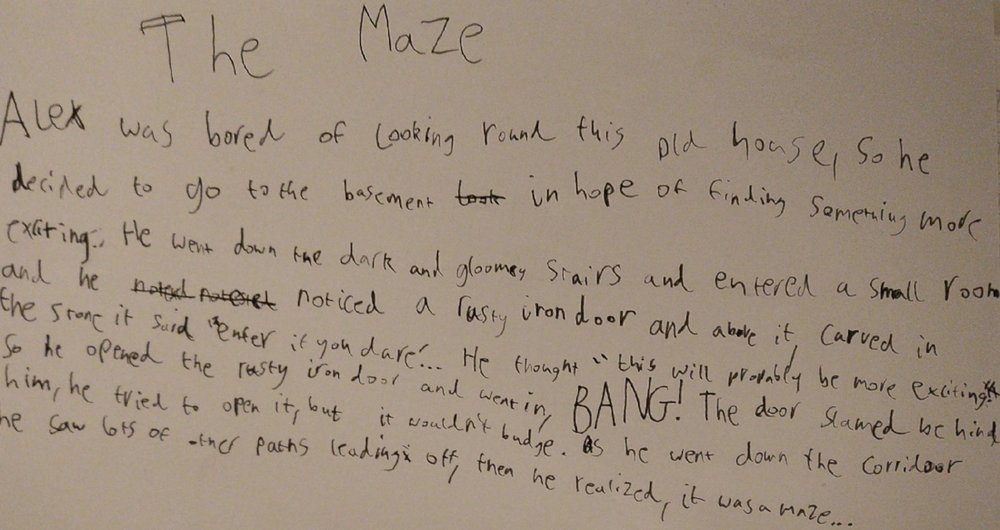 The Maze
Alex was bored of looking round this old house, so he
decided to go to the basement took in hope of finding something more
exciting. He went down the dark and gloomey stairs and entered a small room
and he noticed a rusty iron door and above it, carved in
the stone it said "enter if you dare"... He thought "this will probably be more exciting"
So he opened the rusty iron door and went in, BANG! The door slamed behind
him, he tried to open it, but it wouldn't budge. As he went down the corridoor
he saw lots of other paths leading off, then he realized, it was a maze...